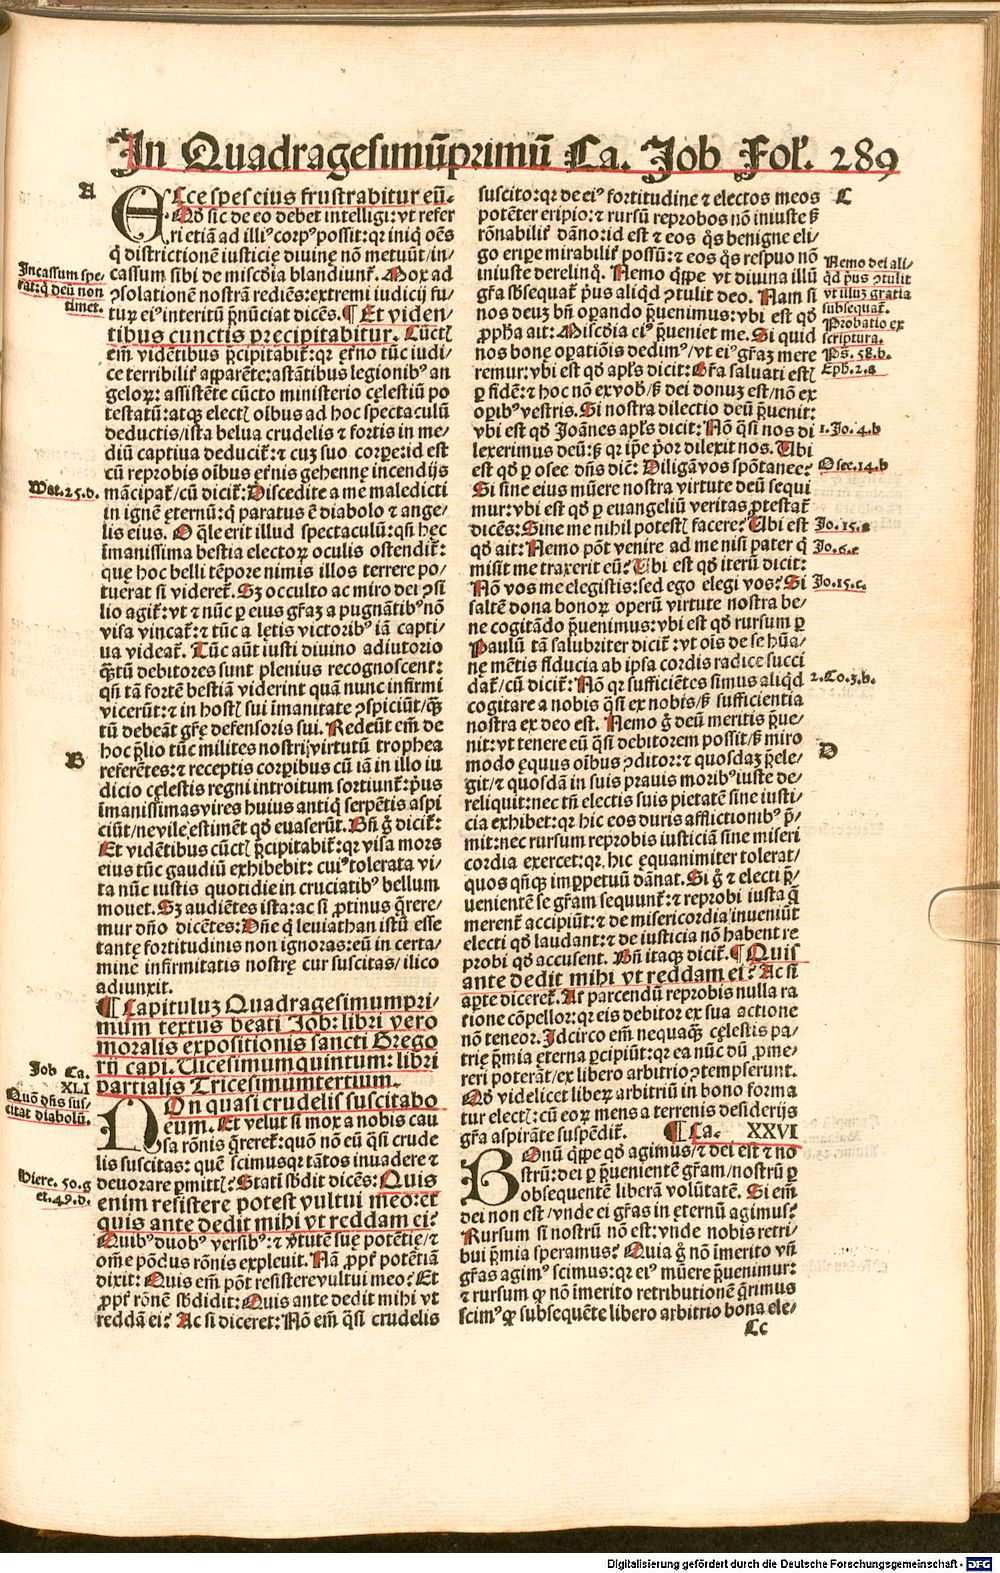 In Quadragesimūprimū Ca. Job Fol. 289
A
ECce spes eius frustrabitur eū.
Qđ sic de eo debet intelligi: vt refer
ri etiā ad illiꝰ corpꝰ possit: qr iniq̄ oēs
q̄ districtionē iusticię diuinę nō metuūt/in/
cassum sibi de miscđia blandiunt̄. Mox ad
Incassum spe
rāt: q̄ deū non
timet.
ꝯsolationē nostrā rediēs: extremi iudicij fu/
turę eiꝰ interitū p̄nūciat dicēs. ¶ Et viden/
tibus cunctis precipitabitur. Cūctꝭ
em̄ vidētibus p̄cipitabit̄: qr ęt̄no tūc iudi/
ce terribilit̄ apparēte: astātibus legionibꝰ an
geloꝝ: assistēte cūcto ministerio cęlestiū po
testatū: atqꝫ electꝭ oībus ad hoc spectaculū
deductis/ista belua crudelis ⁊ fortis in me/
diū captiua deducit̄: ⁊ cuꝫ suo corpe: id est
cū reprobis oībus ęt̄nis gehennę incendijs
Mat. 25. d.
mācipat̄/cū dicit̄: Discedite a me maledicti
in ignē ęternū: q̄ paratus ē diabolo ⁊ ange/
lis eius. O q̄le erit illud spectaculū: qn̄ hęc
īmanissima bestia electoꝝ oculis ostendit̄:
quę hoc belli tēpore nimis illos terrere po/
tuerat si videret̄. Sꝫ occulto ac miro dei ꝯsi
lio agit̄: vt ⁊ nūc ꝑ eius gr̄aꝫ a pugnātibꝰ nō
visa vincat̄: ⁊ tūc a lętis victoribꝰ iā capti/
ua videat̄. Tūc aūt iusti diuino adiutorio
q̄tū debitores sunt plenius recognoscent:
qn̄ tā fortē bestiā viderint quā nunc infirmi
vicerūt: ⁊ in hostꝭ sui īmanitate ꝯspiciūt/q̄
tū debeāt gr̄ę defensoris sui. Redeūt em̄ de
B
hoc p̄lio tūc milites nostri/virtutū trophea
referētes: ⁊ receptis corꝑibus cū iā in illo iu
dicio cęlestis regni introitum sortiunt̄: p̄us
īmanissimas vires huius antiq̄ serpētis aspi
ciūt/ne vile estimēt qđ euaserūt. Bn̄ g̊ dicit̄:
Et vidētibus cūctꝭ p̄cipitabit̄: qr visa mors
eius tūc gaudiū exhibebit: cuiꝰ tolerata vi/
ta nūc iustis quotidie in cruciatibꝰ bellum
mouet. Sꝫ audiētes ista: ac si ꝓtinus q̄rere/
mur dn̄o dicētes: Dn̄e q̄ leuiathan istū esse
tantę fortitudinis non ignoras: eū in certa/
mine infirmitatis nostrę cur suscitas/ilico
adiunxit.
¶ Capituluꝫ Quadragesimumpri/
mum textus beati Job: libri vero
moralis expositionis sancti Grego
rij capi. Uicesimumquintum: libri
partialis Tricesimumtertium.
Job Ca.
XLI
Quō dn̄s sus/
citat diabolū.
NOn quasi crudelis suscitabo
eum. Et velut si mox a nobis cau
sa rōnis q̄reret̄: quō nō eū q̄si crude
lis suscitas: quē scimusqr tātos inuadere ⁊
deuorare ꝑmittꝭ? Stati sb̄dit dicēs: Quis
Hiere. 50. g
et. 49. d.
enim resistere potest vultui meo: et
quis ante dedit mihi vt reddam ei?
Quibꝰ duobꝰ versibꝰ: ⁊ v̄tutē suę potētię/⁊
om̄e pōdus rōnis expleuit. Nā ꝓpt̄ potētiā
dixit: Quis em̄ pōt resistere vultui meo? Et
ꝓpt̄ rōnē sb̄didit: Quis ante dedit mihi vt
reddā ei? Ac si diceret: Nō em̄ q̄si crudelis
suscito: qr de eiꝰ fortitudine ⁊ electos meos
C
potēter eripio: ⁊ rursū reprobos nō iniuste ß
rōnabilit̄ dāno: id est ⁊ eos q̊s benigne eli/
go eriꝑe mirabilit̄ possū: ⁊ eos q̊s respuo nō
iniuste derelinq̄. Nemo q̄ppe vt diuina illū
gr̄a sb̄sequat̄ p̄us aliqđ ꝯtulit deo. Nam si
Nemo del ali/
qđ p̄us ꝯtulit
vt illuꝫ gratia
subsequat̄.
nos deuꝫ bn̄ oꝑando p̄uenimus: vbi est qđ
ꝓpħa ait: Miscđia eiꝰ p̄ueniet me. Si quid
Probatio ex
scriptura.
Ps. 58. b.
nos bonę oꝑatiōis dedimꝰ/vt eiꝰ gr̄aꝫ mere
remur: vbi est qđ apl̄s dicit: Gr̄a saluati estꝭ
Eph. 2. a
ꝑ fidē: ⁊ hoc nō ex vob̄/ß dei donuꝫ est/nō ex
oꝑibꝰ vestris. Si nostra dilectio deū p̄uenit:
vbi est qđ Joānes apl̄s dicit: Nō q̄si nos di
1. Jo. 4. b
lexerimus deū: ß qr ip̄e p̄or dilexit nos. Ubi
est qđ ꝑ osee dn̄s dic̄: Diligā vos spōtanee?
Osee. 14. b
Si sine eius mūere nostra virtute deū sequi
mur: vbi est qđ ꝑ euangeliū veritas ꝓtestat̄
dicēs: Sine me nihil potestꝭ facere? Ubi est
Jo. 15. a
qđ ait: Nemo pōt venire ad me nisi pater q̄
Jo. 6. e
misit me traxerit eū? Ubi est qđ iterū dicit:
Nō vos me elegistis: sed ego elegi vos? Si
Jo. 15. c.
saltē dona bonoꝝ operū virtute nostra be/
ne cogitādo p̄uenimus: vbi est qđ rursum ꝑ
Paulū tā salubriter dicit̄: vt oīs de se hūa/
nę mētis fiducia ab ipsa cordis radice succi
dat̄/cū dicit̄: Nō qr sufficiētes simus aliqđ
2. Co. 3. b.
cogitare a nobis q̄si ex nobis/ß sufficientia
nostra ex deo est. Nemo g̊ deū meritis p̄ue/
nit: vt tenere eū q̄si debitorem possit/ß miro
D
modo ęquus oībus ꝯditor: ⁊ quosdaꝫ p̄ele/
git/⁊ quosdā in suis prauis moribꝰ iuste de/
reliquit: nec tn̄ electis suis pietatē sine iusti/
cia exhibet: qr hic eos duris afflictionibꝰ p̄/
mit: nec rursum reprobis iusticiā sine miseri
cordia exercet: qr hic ęquanimiter tolerat/
quos qn̄qꝫ imꝑpetuū dānat. Si g̊ ⁊ electi p̄/
uenientē se gr̄am sequunt̄: ⁊ reprobi iusta q̄
merent̄ accipiūt: ⁊ de misericordia inueniūt
electi qđ laudant: ⁊ de iusticia nō habent re
probi qđ accusent. Bn̄ itaqꝫ dicit̄. ¶ Quis
ante dedit mihi vt reddam ei? Ac si
apte diceret̄. At parcendū reprobis nulla ra
tione cōpellor: qr eis debitor ex sua actione
nō teneor. Idcirco em̄ nequaq̄ cęlestis pa/
trię p̄mia ęterna ꝑcipiūt: qr ea nūc dū ꝓme/
reri poterāt/ex libero arbitrio ꝯtempserunt.
Qđ videlicet liberꝝ arbitriū in bono forma
tur electꝭ: cū eoꝝ mens a terrenis desiderijs
gr̄a aspirāte suspēdit̄. ¶ Ca. XXVI
BOnū q̄ppe qđ agimus/⁊ dei est ⁊ no
strū: dei ꝑ p̄uenientē gr̄am/nostrū ꝑ
obsequentē liberā volūtatē. Si em̄
dei non est/vnde ei gr̄as in ęternū agimus?
Rursum si nostrū nō est: vnde nobis retri/
bui p̄mia speramus? Quia g̊ nō īmerito vn̄
gr̄as agimꝰ scimus: qr eiꝰ mūere p̄uenimur:
⁊ rursum qꝛ nō īmerito retributionē q̄rimus
scimꝰ qꝛ subsequēte libero arbitrio bona ele/
Cc
Digitalisierung gefördert durch die Deutsche Forschungsgemeinschaft - DFG